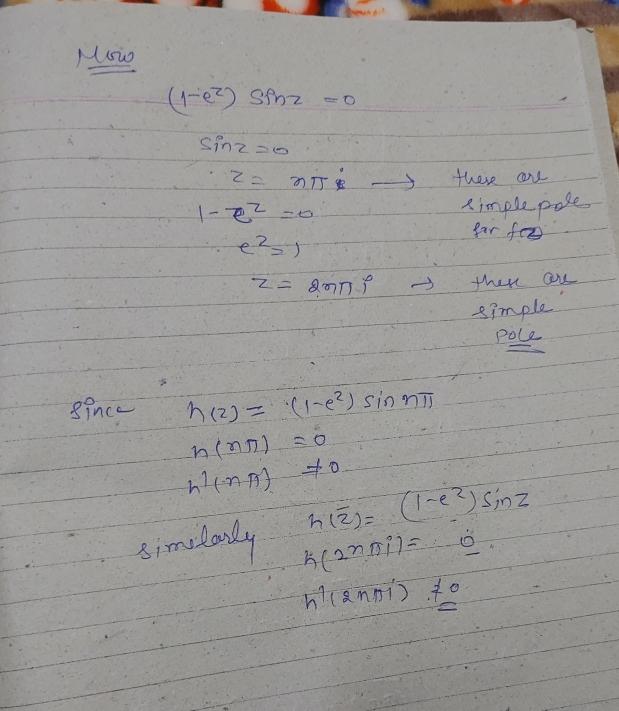 Now
(1-e^z) sinz =0
sinz=0
z = nπ → these are
simple pole
for f(z)
1-e^z =0
e^z=1
z= 2nπi → these are
simple
pole
Since h(z) = (1-e^z) sin nπ
h(nπ) =0
h'(nπ) ≠0
similarly h(z)= (1-e^z) sinz
h(2nπi)= 0
h'(2nπi) ≠0